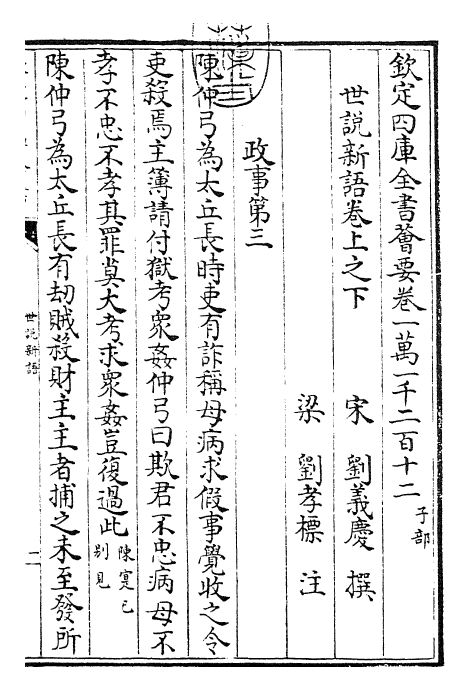 欽定四庫全書薈要卷一萬一千二百十二 子部
世說新語卷上之下
宋 劉義慶 撰
梁 劉孝標 注
政事第三
陳仲弓為太丘長時吏有詐稱母病求假事覺收之令
吏殺焉主簿請付獄考衆姦仲弓曰欺君不忠病母不
孝不忠不孝其罪莫大考求衆姦豈復過此 陳寔已別見
陳仲弓為太丘長有劫賊殺財主主者捕之未至發所
世説新語